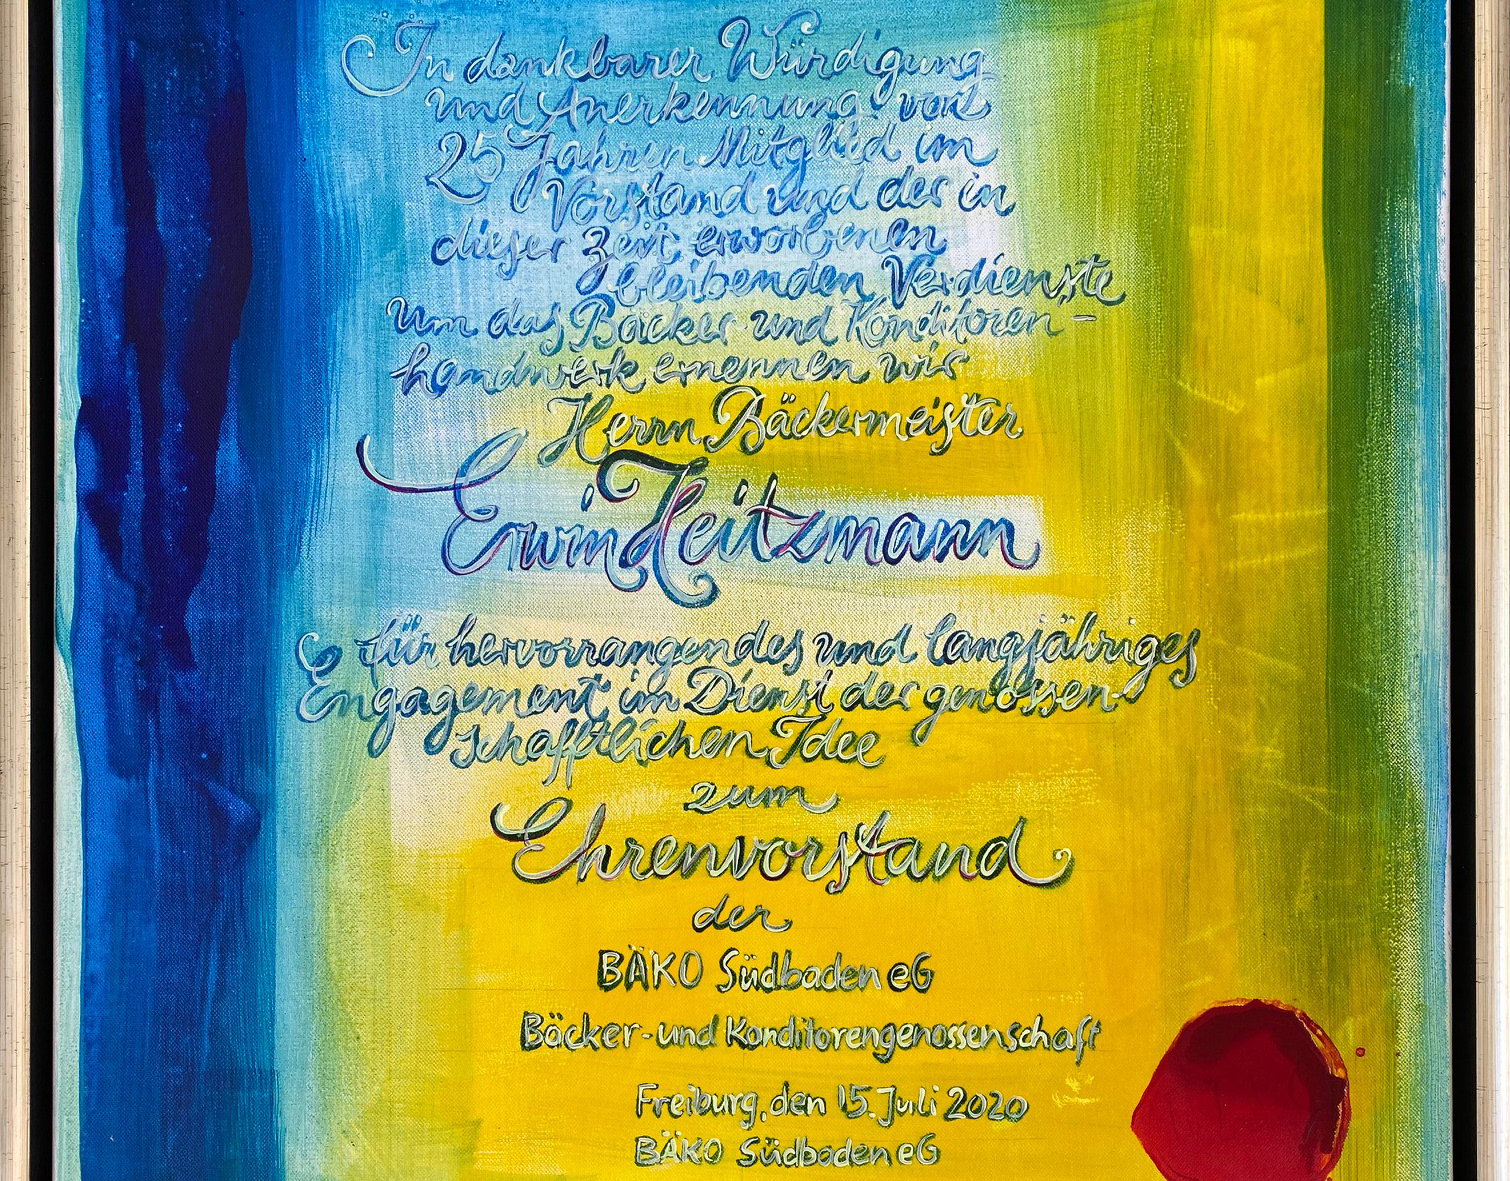 In dankbarer Würdigung
und Anerkennung von
25 Jahren Mitglied im
Vorstand und der in
dieser Zeit erworbenen
bleibenden Verdienste
um das Bäcker und Konditoren-
handwerk ernennen wir
Herrn Bäckermeister
Erwin Heitzmann
für hervorrangendes und langjähriges
Engagement im Dienst der genossen-
schafftlichen Idee
zum
Ehrenvorstand
der
BÄKO Südbaden eG
Bäcker-und Konditorengenossenschaft
Freiburg, den 15. Juli 2020
BÄKO Südbaden eG